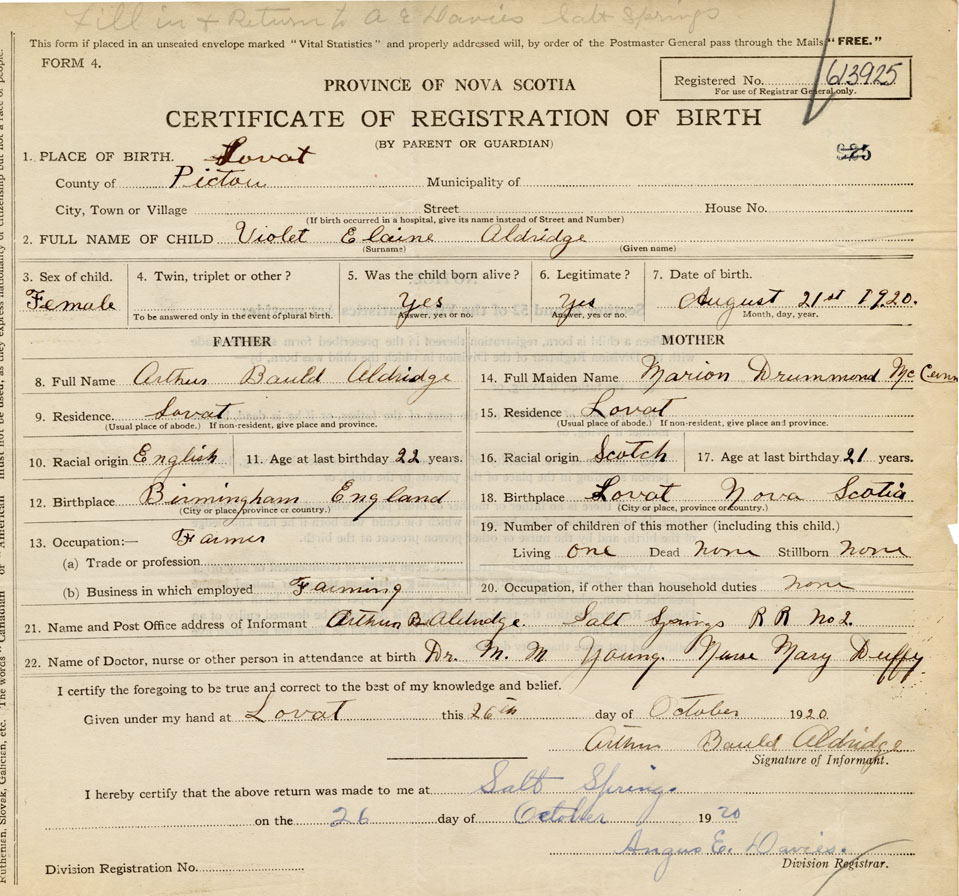 Fill in & Return to A E Davies Salt Springs
This form if placed in an unsealed envelope marked "Vital Statistics" and properly addressed will, by order of the Postmaster General pass through the Mails "FREE."
FORM 4.
Registered No. 613925
For use of Registrar General only.
PROVINCE OF NOVA SCOTIA
CERTIFICATE OF REGISTRATION OF BIRTH
(BY PARENT OR GUARDIAN)
925
1. PLACE OF BIRTH. Lovat
County of Pictou Municipality of
City, Town or Village Street House No.
(If birth occurred in a hospital, give its name instead of Street and Number)
2. FULL NAME OF CHILD Violet Elaine Aldridge
(Surname) (Given name)
3. Sex of child. 4. Twin, triplet or other? 5. Was the child born alive? 6. Legitimate? 7. Date of birth.
Female Yes Yes August 21st 1920.
To be answered only in the event of plural birth. Answer, yes or no. Answer, yes or no. Month, day, year.
FATHER MOTHER
8. Full Name Arthur Bauld Aldridge 14. Full Maiden Name Marion Drummond
9. Residence. Lovat 15. Residence Lovat
(Usual place of abode.) If non-resident, give place and province. (Usual place of abode.) If non-resident, give place and province.
10. Racial origin English 11. Age at last birthday 22 years. 16. Racial origin Scotch 17. Age at last birthday 21 years.
12. Birthplace Birmingham England 18. Birthplace Lovat Nova Scotia
(City or place, province or country.) (City or place, province or country.)
13. Occupation:— Farmer 19. Number of children of this mother (including this child.)
(a) Trade or profession Living one Dead none Stillborn none
(b) Business in which employed Farming 20. Occupation, if other than household duties none
21. Name and Post Office address of Informant Arthur B. Aldridge. Salt Springs R R No 2.
22. Name of Doctor, nurse or other person in attendance at birth Dr. M. M Young. Nurse Mary Duffy
I certify the foregoing to be true and correct to the best of my knowledge and belief.
Given under my hand at Lovat this 26th day of October 1920
Arthur Bauld Aldridge
Signature of Informant.
I hereby certify that the above return was made to me at Salt Springs
on the 26 day of October 1920
Angus E. Davies.
Division Registrar.
Division Registration No.